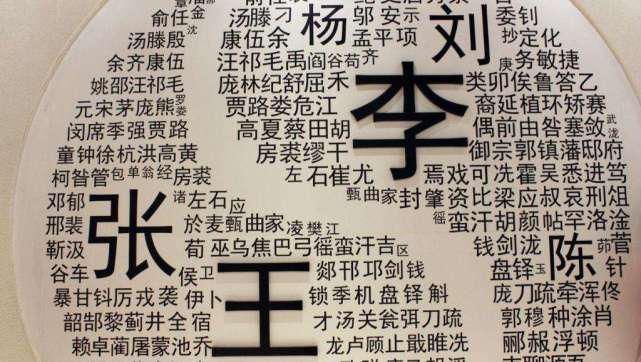 俞任金 汤滕刁 杨 邬安示 刘 委钊
汤滕殷沈 康伍余 孟平项 抄定化
余齐康伍 汪祁毛禹阎谷苟齐 庚务敏捷
姚邵汪祁毛 庞林纪舒屈禾 李 类卯俟鲁答乙
元宋茅庞熊罗娄 贾路娄危江 裔延植环矫赛
闵席季强贾路 高夏蔡田胡 偶前由喾塞敛武泷
童钟徐杭洪高黄 房裘缪干 御宗郭镇藩邸府
柯昝管包单翁经房裘 左石崔尤 焉戏可冼霍吴悉进笃
邓郁 张 诸左石应 甄曲家封肇资比梁应叔哀刑俎
邢裴 於麦甄曲家凌樊江 徭蛮汗胡颜帖罕洛淦
靳汲 荀巫乌焦巴弓徭蛮汗吉区 钱剑泷 陈 茆菅
谷车 侯卫 王 郯邗邛剑钱 盘铎玉 针
暴甘钭厉戎袭伊卜 锁季机盘铎斛 庞刀疏牵浑佟
韶郜黎蓟井全宿 才汤关瓮弭刀疏 郭穆种涂肖
赖卓蔺屠蒙池乔 龙卢顾止戢睢冼 郦赦浮顿